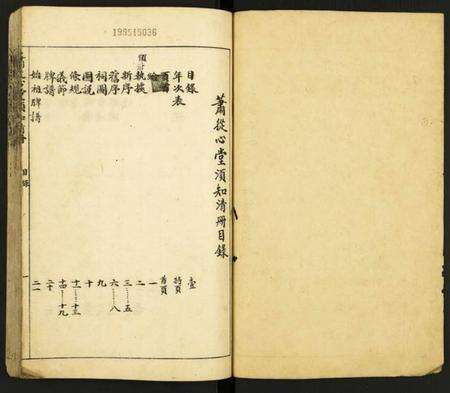 195515036
蕭從心堂須知清冊目錄
目錄 壹
年次表 特頁
首頁
一
執據 二
新序 三……五
舊序 六……八
祠圖 九
圖說 十
條規 十一……十三
義節 十四……十九
牌譜 二十
始祖牌譜 二一
目錄